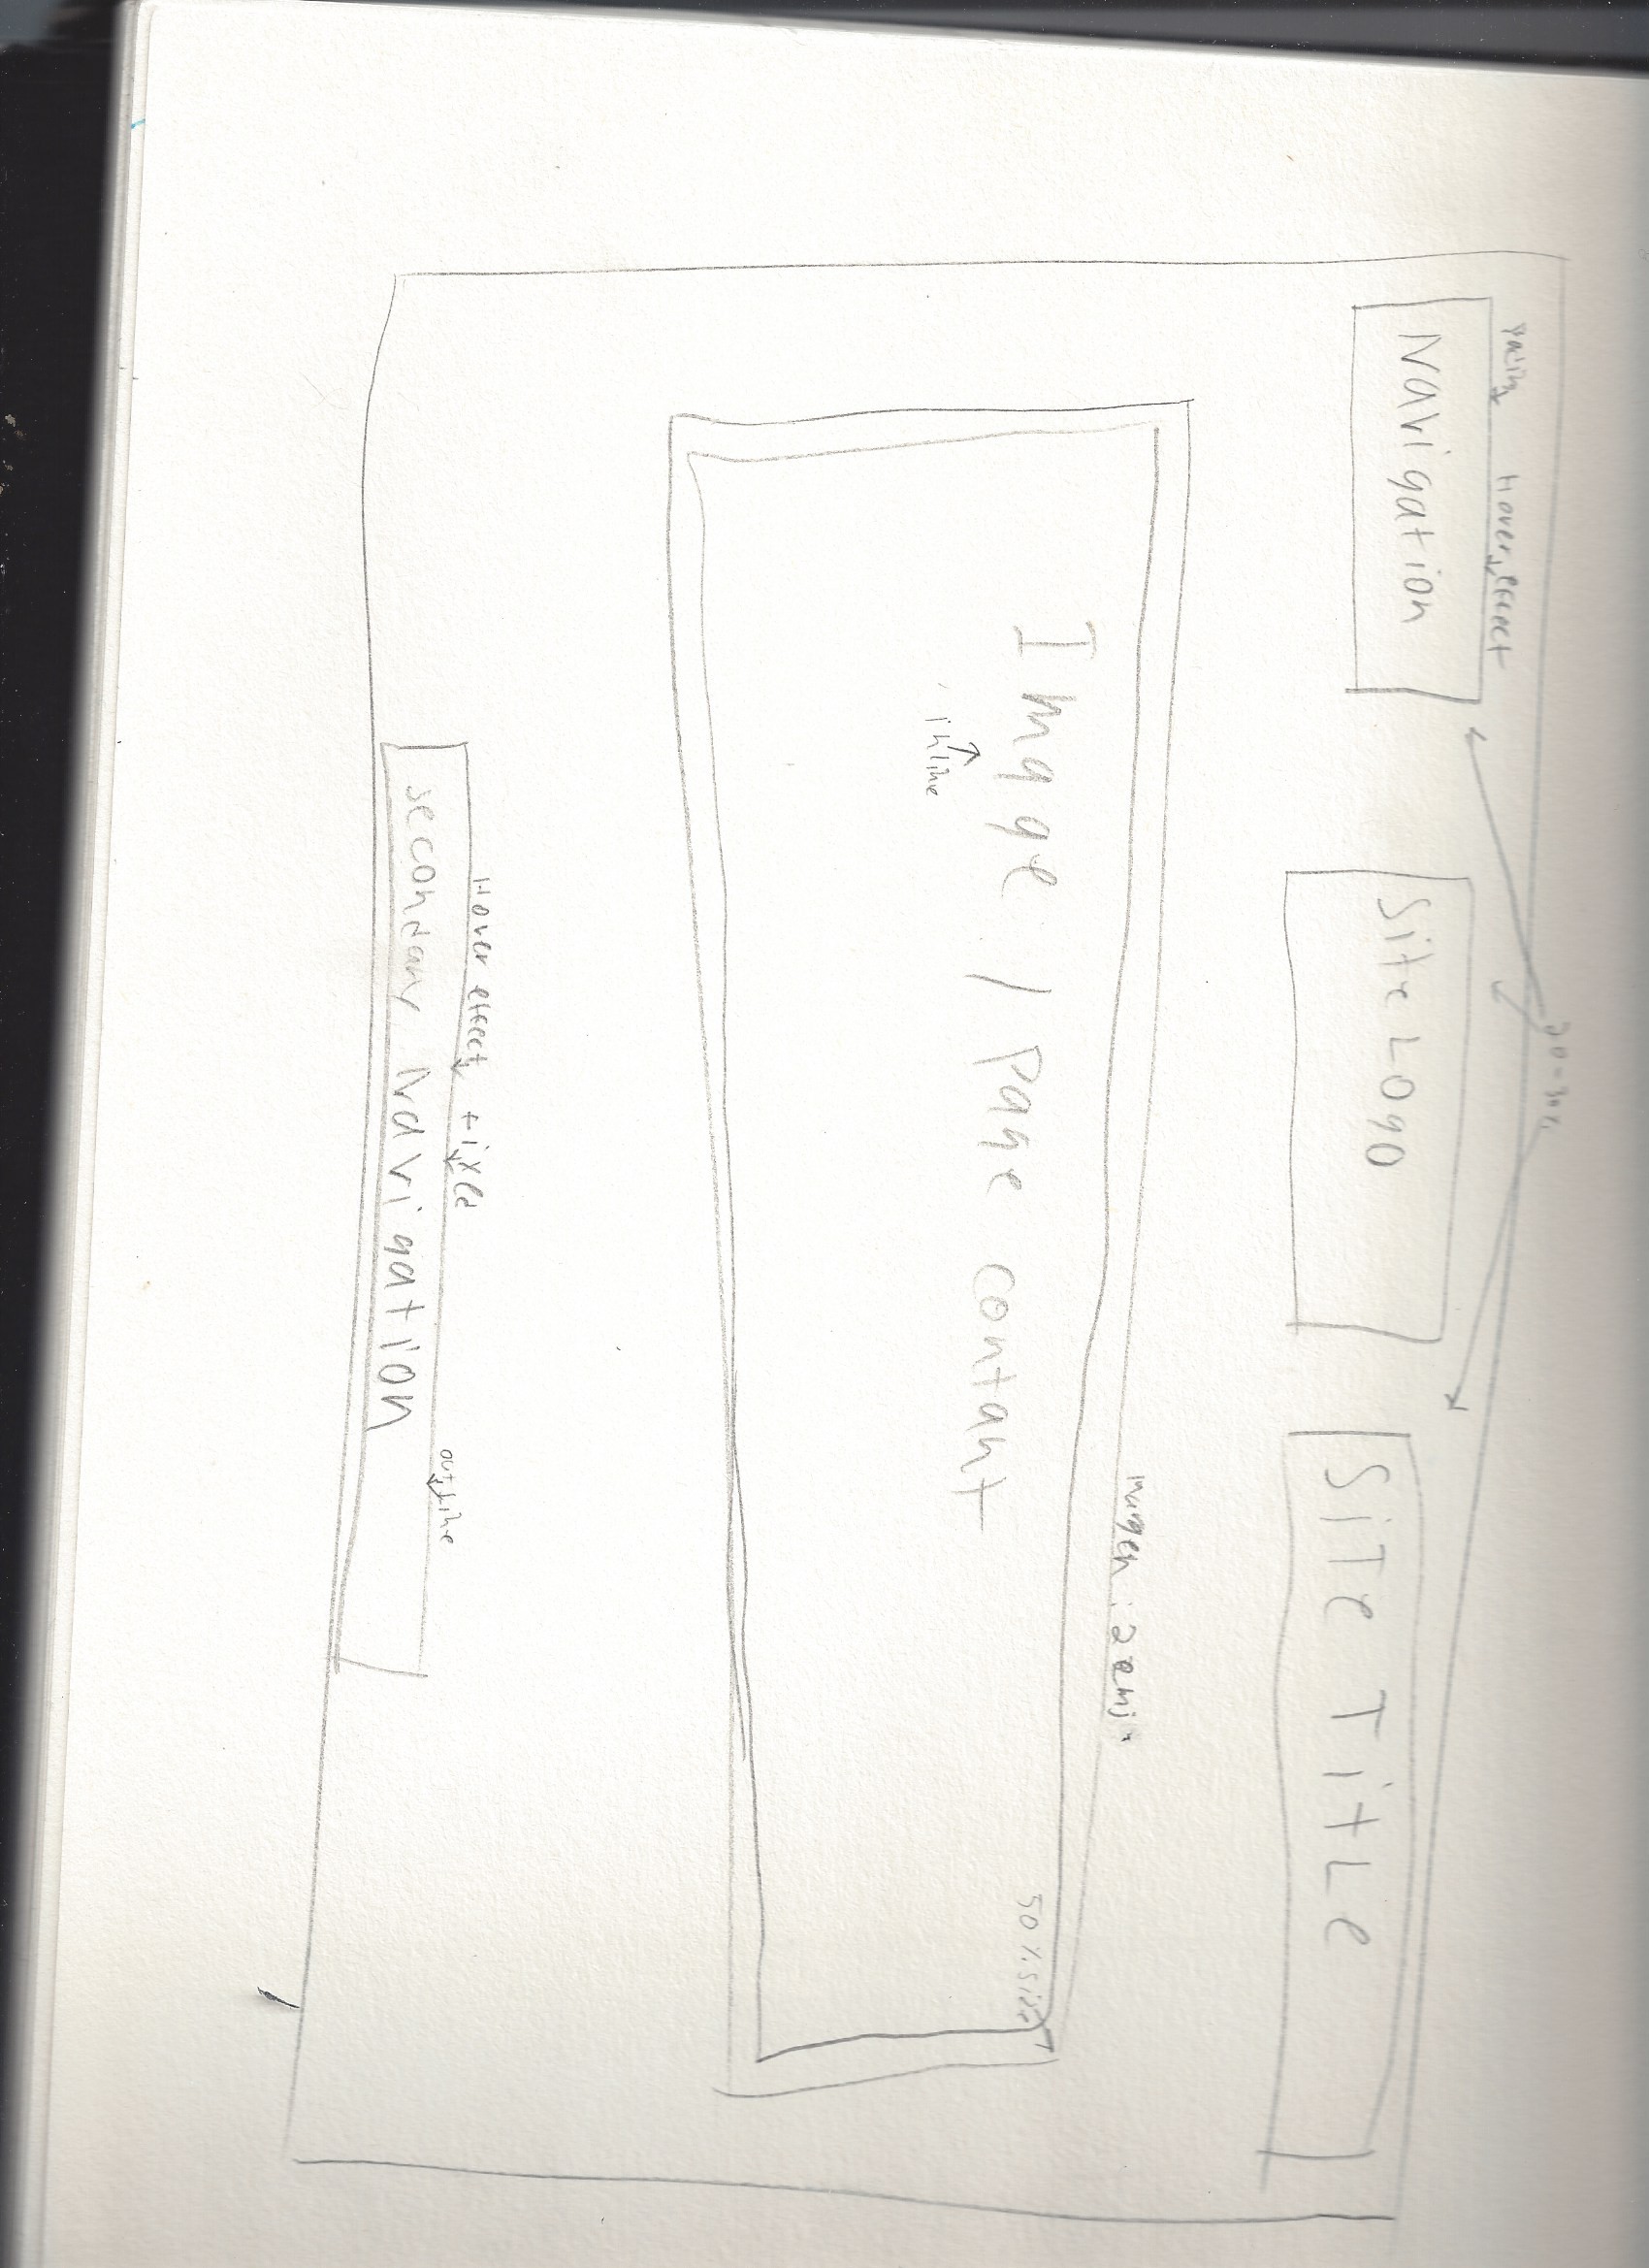 20-30%
Hover effect
Navigation
Site LOGO
SiTe TitLe
margen : 2em;
50% size
Image / Page contant
inline
Hover effect fixed
outline
secondary Navigation